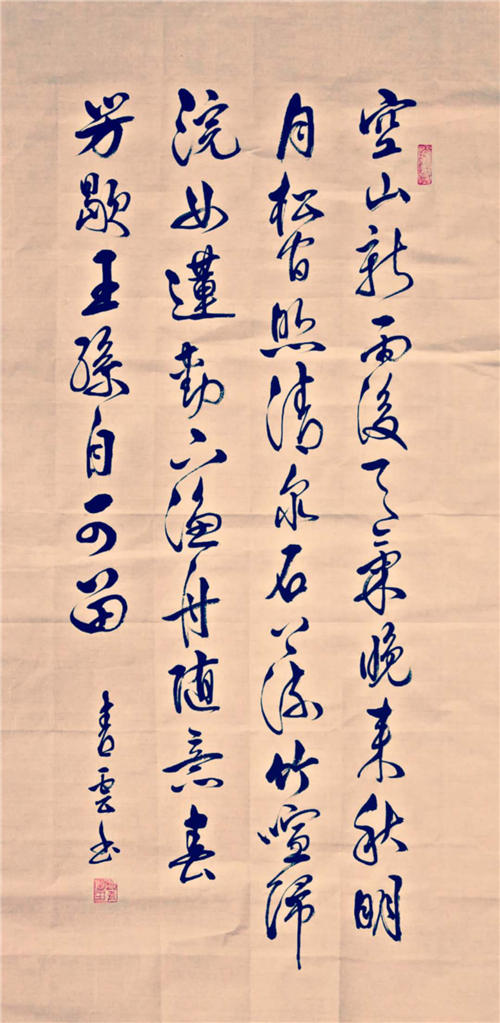 空山新雨後天氣晚来秋明
月松間照清泉石上流竹喧帰
浣女蓮動下漁舟随意春
芳歇王孫自可留
青雲书